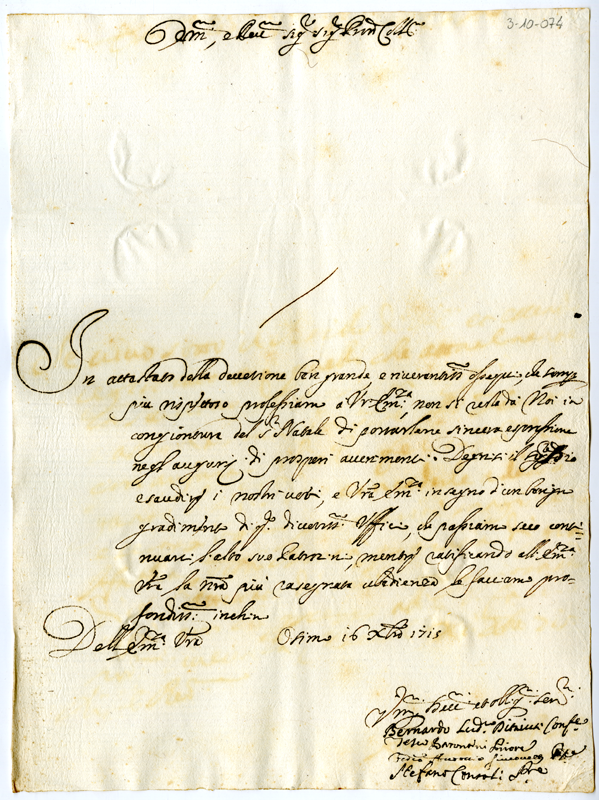 3-10-074
Em.mo, e Rev.mo Sig.r Sig.r Pron Coll.mo
In attestato della devotione ben grande e riverentiss.mi ossequi, che sempre
più rispettoso professiamo a Vra Em.za non si resta da Noi in
congiontura del S. Natale di portarlene sincera espressione
negli augurij di prosperi avvenimenti. Degnisi il
esaudire i nostri voti, e Vra Em.za in segno d'un benigno
gradimento di q.ti divotiss.mi Ufficij, che passiamo seco conti-
nuarci l'alto suo Patrocinio, mentre ratificando all'Em.za
Vra la nra più rasegnata ubidienza le facciamo pro-
fondiss.mo inchino
Dell'Em.za Vra Osimo 16 Xbre 1715
Um.mi Dev.mi et obblig.mi Ser.ri
Bernardo Conf.re
Priore
Stefano